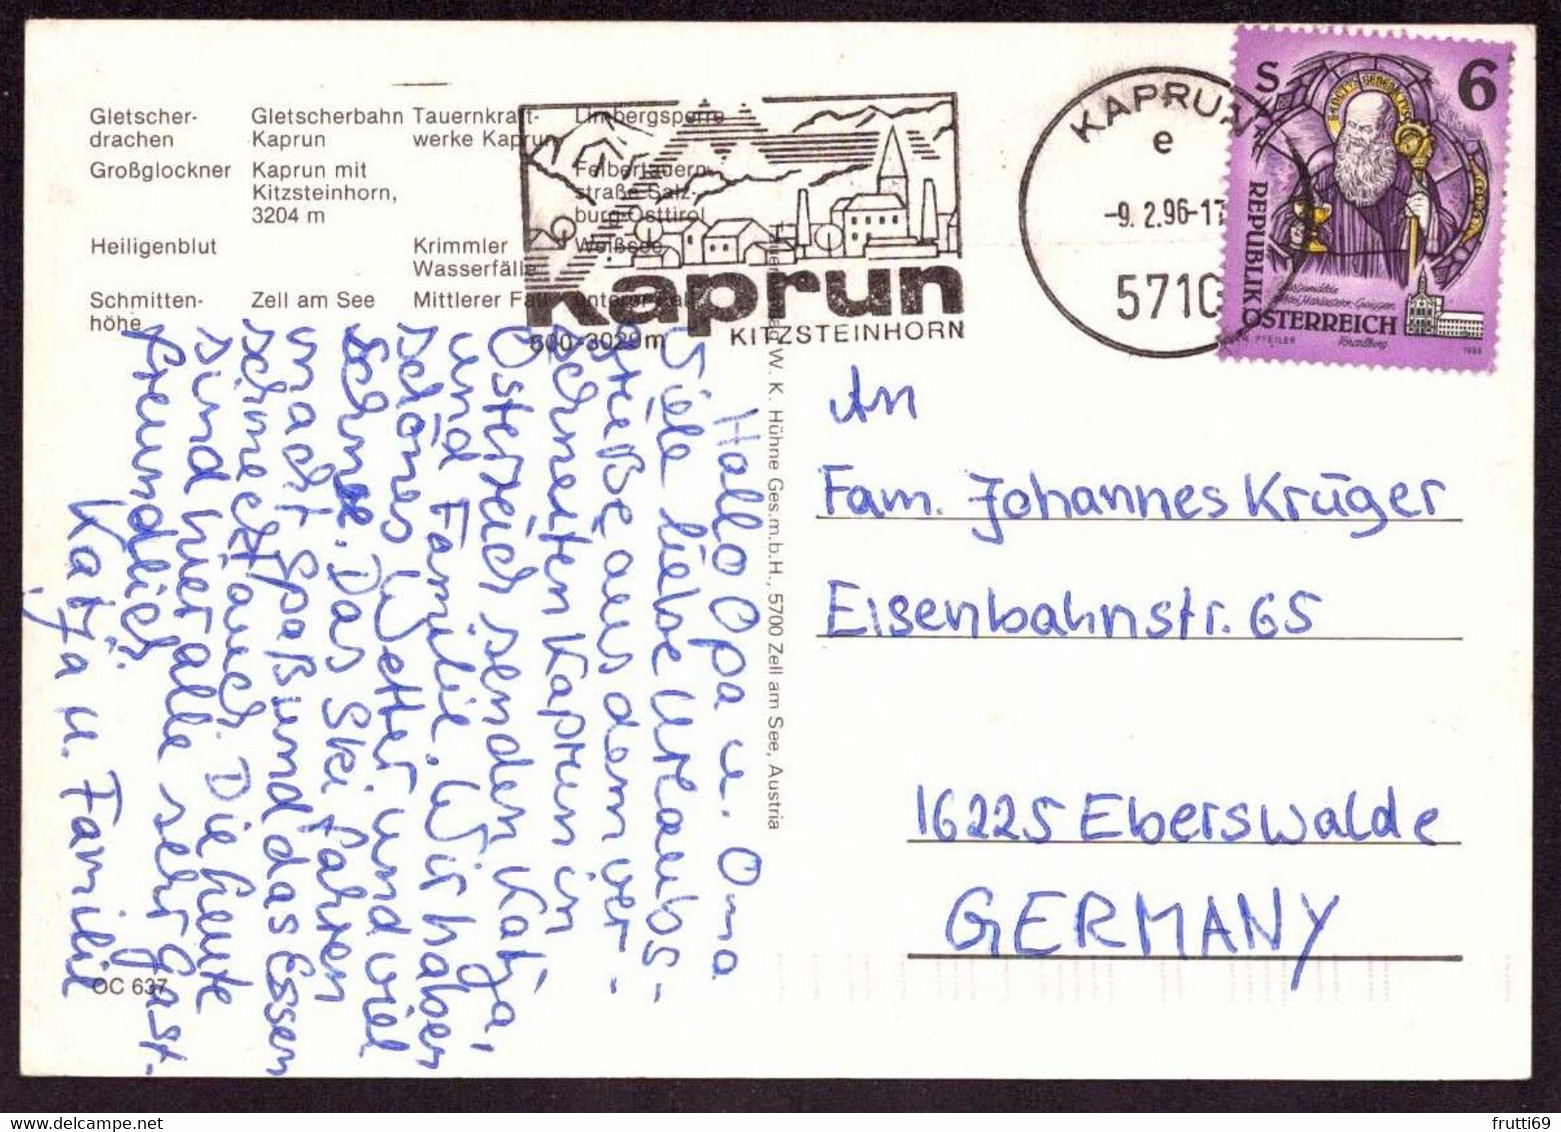 Gletscher-
drachen
Gletscherbahn
Kaprun
Tauernkraft-
werke Kaprun
Limbergsperre
Großglockner
Kaprun mit
Kitzsteinhorn,
3204 m
Felbertauern-
straße Salz-
burg-Osttirol
Heiligenblut
Krimmler
Wasserfälle
Weißsee
Schmitten-
höhe
Zell am See
Mittlerer Fall
Unterer Fall
Kaprun
600-3029m KITZSTEINHORN
KAPRUN
e
-9. 2.96-17
5710
S 6
REPUBLIK
ÖSTERREICH
Vorarlberg
PFEILER
1993
Hallo Opa u. Oma
Viele liebe Urlaubs-
grüße aus dem ver-
schneiten Kaprun in
Österreich senden Katja,
und Familie. Wir haben
schönes Wetter und viel
Schnee. Das Ski fahren
macht Spaß und das Essen
schmeckt auch. Die Leute
sind hier alle sehr Gast-
freundlich.
Katja u. Familie
W. K. Hühne Ges.m.b.H., 5700 Zell am See, Austria
An
Fam. Johannes Krüger
Eisenbahnstr. 65
16225 Eberswalde
GERMANY
OC 637
frutti69